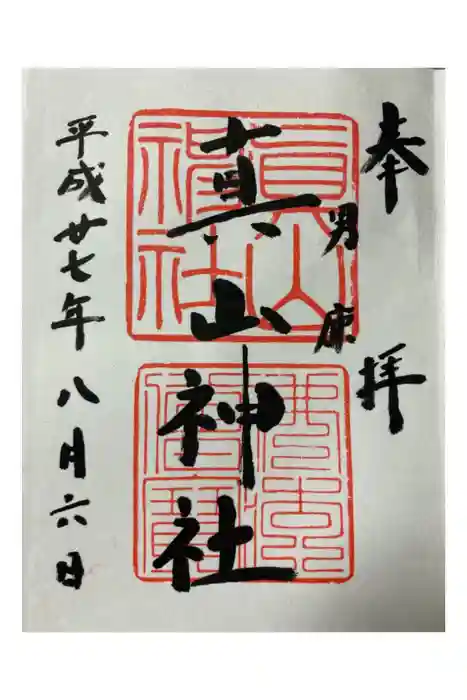 奉拝
男鹿
真山神社
平成廿七年八月六日
眞山
神社
佛法
僧寶